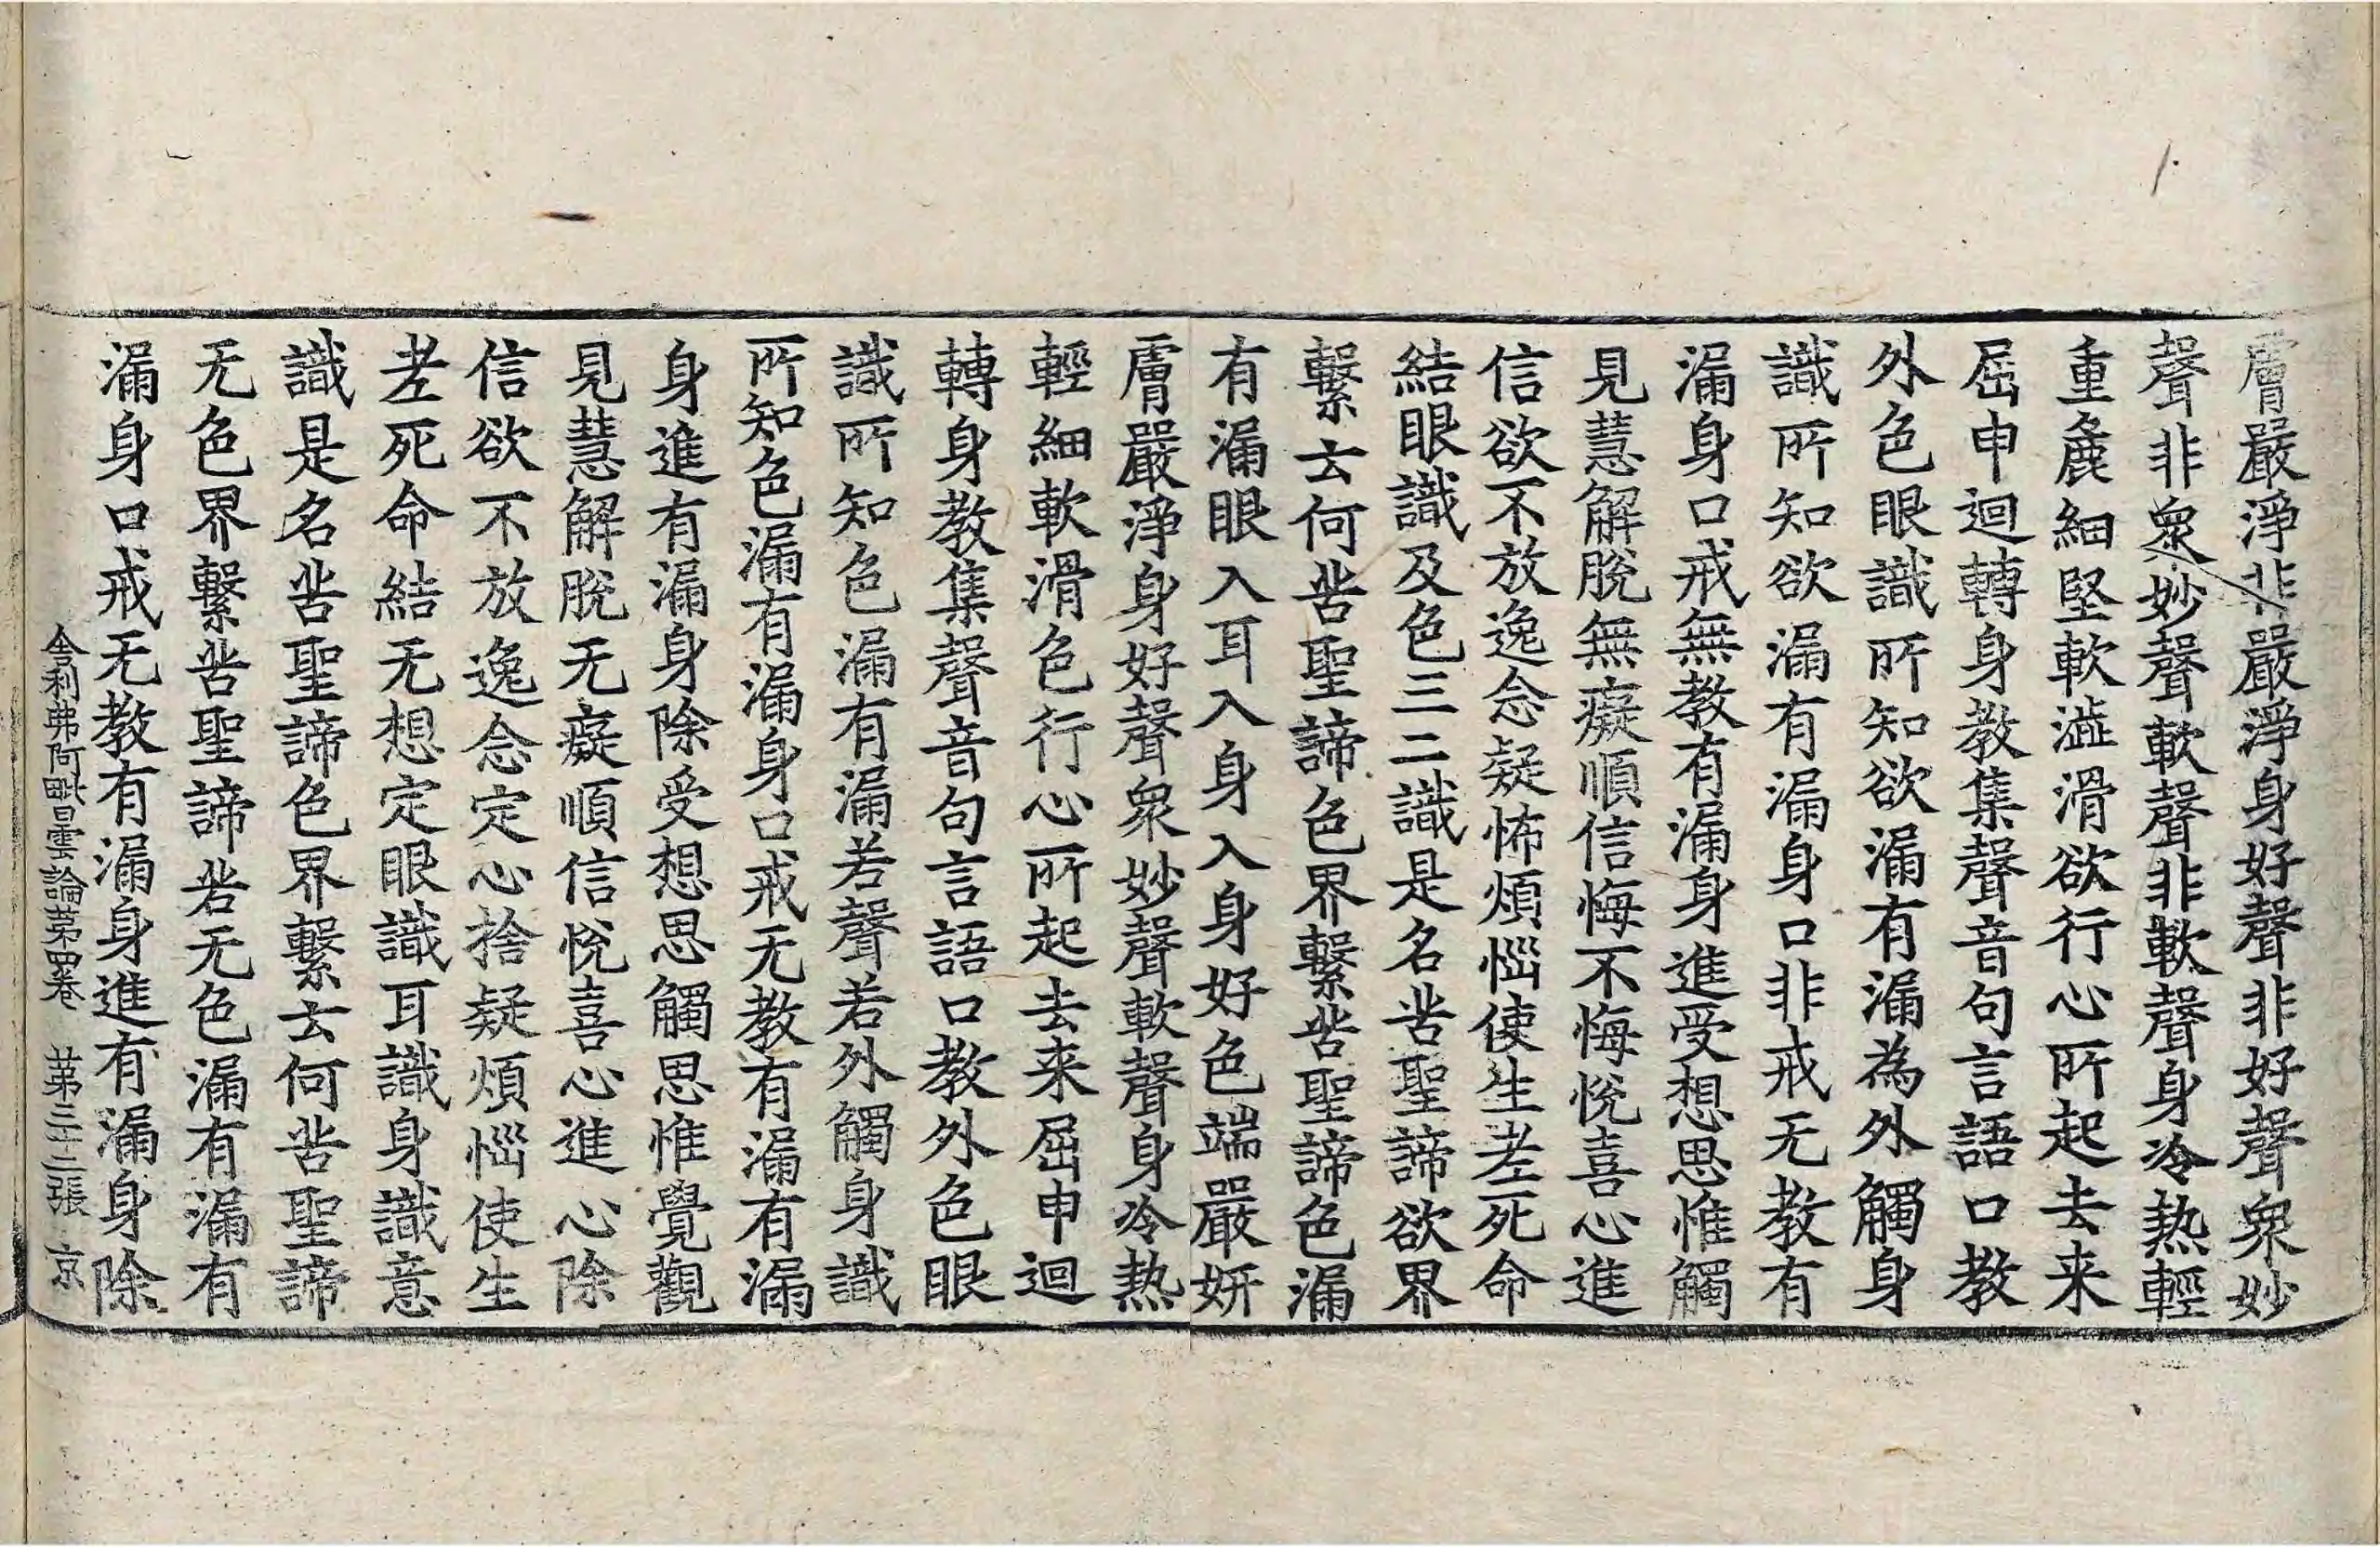 膚嚴淨非嚴淨身好聲非好聲衆妙
聲非衆妙聲軟聲非軟聲身冷熱輕
重麁細堅軟澁滑欲行心所起去来
屈申迴轉身教集聲音句言語口教
外色眼識所知欲漏有漏為外觸身
識所知欲漏有漏身口非戒无教有
漏身口戒無教有漏身進受想思惟觸
見慧解脫無癡順信悔不悔悅喜心進
信欲不放逸念疑怖煩惱使生老死命
結眼識及色三二識是名苦聖諦欲界
繫云何苦聖諦色界繫苦聖諦色漏
有漏眼入耳入身入身好色端嚴妍
膚嚴淨身好聲衆妙聲軟聲身冷熱
輕細軟滑色行心所起去来屈申迴
轉身教集聲音句言語口教外色眼
識所知色漏有漏若聲若外觸身識
所知色漏有漏身口戒无教有漏有漏
身進有漏身除受想思觸思惟覺觀
見慧解脫无癡順信悅喜心進心除
信欲不放逸念定心捨疑煩惱使生
老死命結无想定眼識耳識身識意
識是名苦聖諦色界繫云何苦聖諦
无色界繫苦聖諦若无色漏有漏有
漏身口戒无教有漏身進有漏身除
舍利弗阿毗曇論第四卷 第三十二張 京